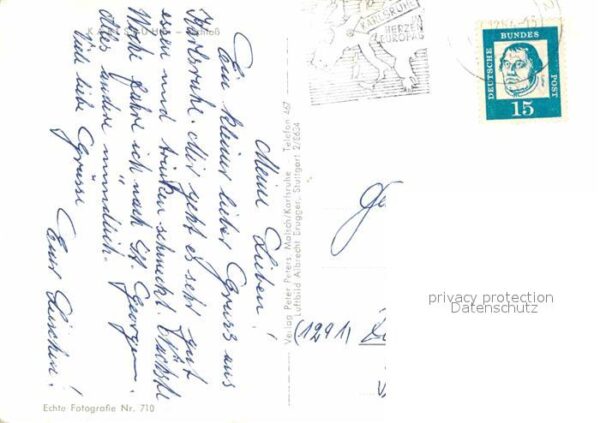 Meine Lieben!
Ein kleiner lieber Gruss aus
Karlsruhe. Mir geht es sehr gut
essen und trinken schmeckt. Nächste
Woche fahre ich nach St. Georgen.
alles andere mündlich.
Viele liebe Grüsse
Eure Luischen!
Echte Fotografie Nr. 710
Verlag Peter Peters, Malsch/Karlsruhe Telefon 467
Luftbild Albrecht Brugger, Stuttgart 2/8604
KARLSRUHE
HERZEN
EUROPAS
DEUTSCHE
BUNDES
POST
15
(1291)
privacy protection
Datenschutz